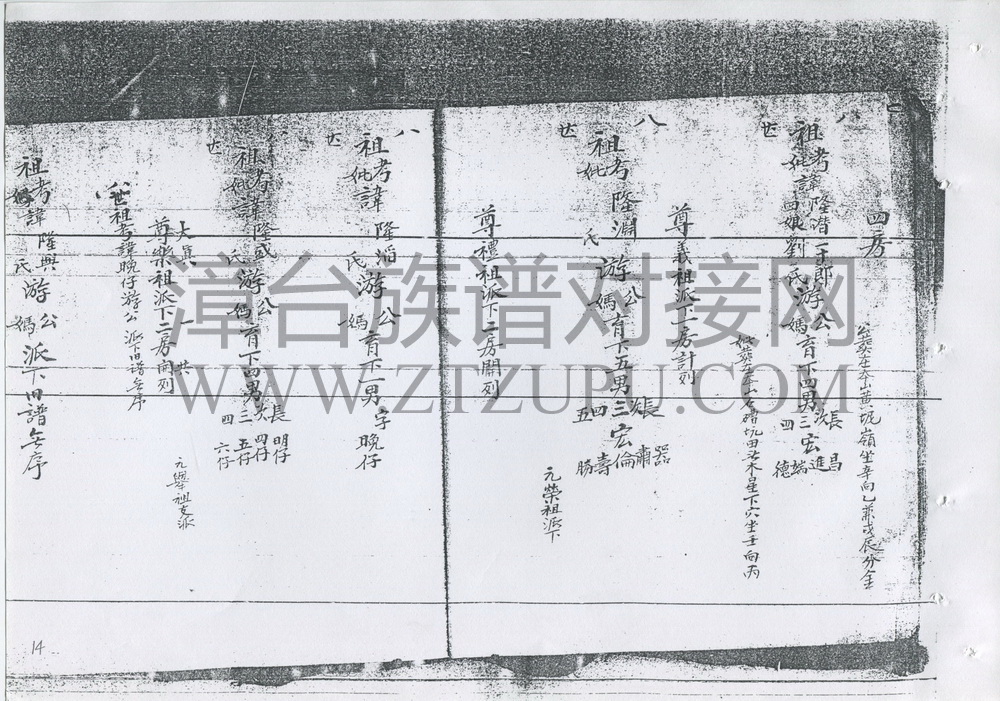 四房
公葬在牛山黄坭嶺坐辛向乙兼戊辰分金
八世
祖考諱隆譜一郎游公
妣四娘劉氏媽
育下四男
長 昌
次 進
三 宏 端
四 德
妣葬在石磜坑田丑木星下穴坐壬向丙
尊義祖派下一房計列
八世
祖考隆淵游公
妣 氏媽
育下五男
長 器
次 肅
三 宏 倫
四 壽
五 勝
元榮祖派下
尊禮祖派下二房開列
八世
祖考諱隆滔游公
妣 氏媽
育下一男字晚仔
世
祖考諱隆盛游公
妣 氏媽
育下四男
長 明仔
次 四仔
三 五仔
四 六仔
元舉祖支派
尊樂祖派下二房開列
八世祖考諱晚仔游公 派下旧譜无序
祖考諱隆興游公
妣 氏媽
派下旧譜无序
14
漳台族谱对接网
WWW.ZTZUPU.COM